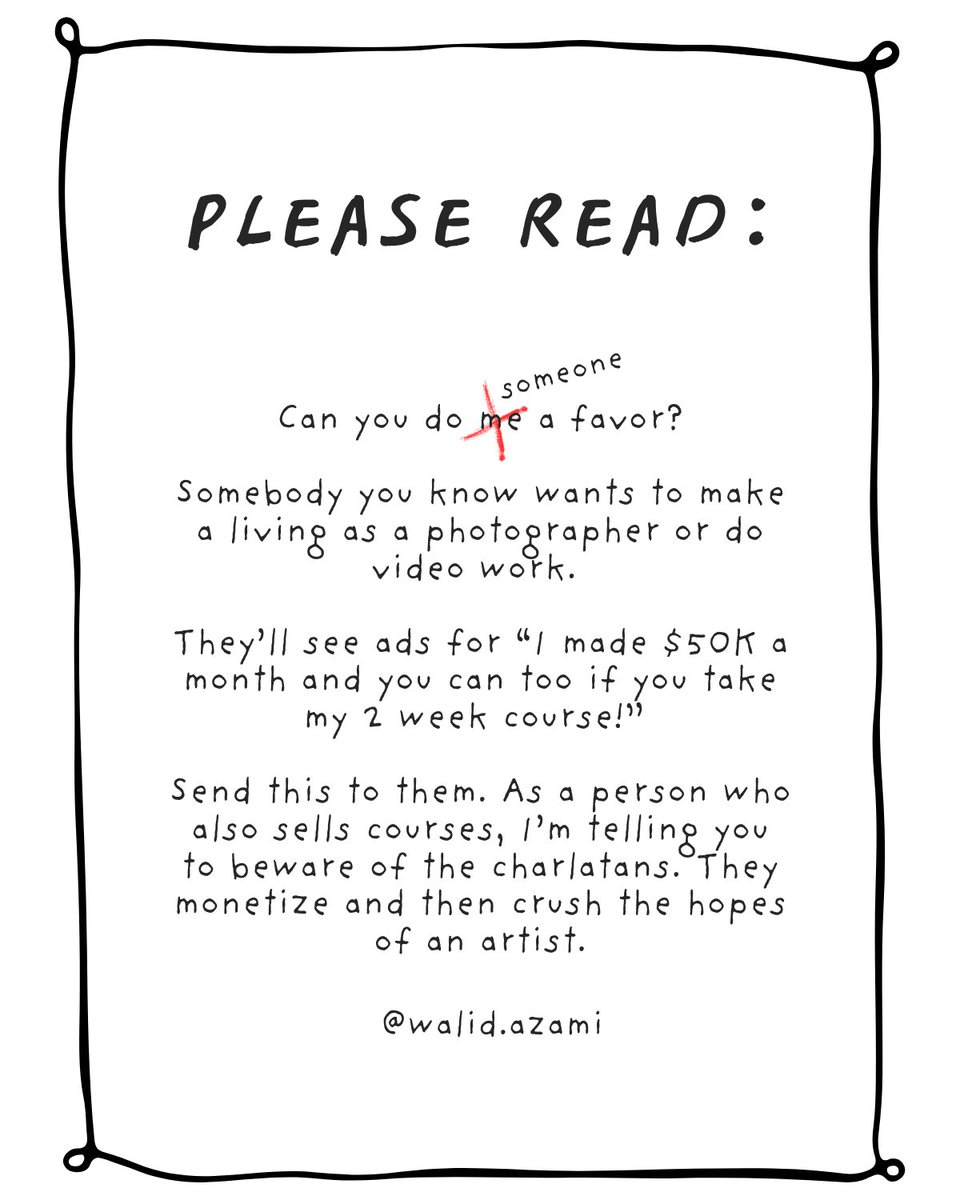 PLEASE READ:
someone
Can you do me a favor?
Somebody you know wants to make
a living as a photographer or do
video work.
They'll see ads for “I made $50K a
month and you can too if you take
my 2 week course!”
Send this to them. As a person who
also sells courses, I'm telling you
to beware of the charlatans. They
monetize and then crush the hopes
of an artist.
@walid.azami